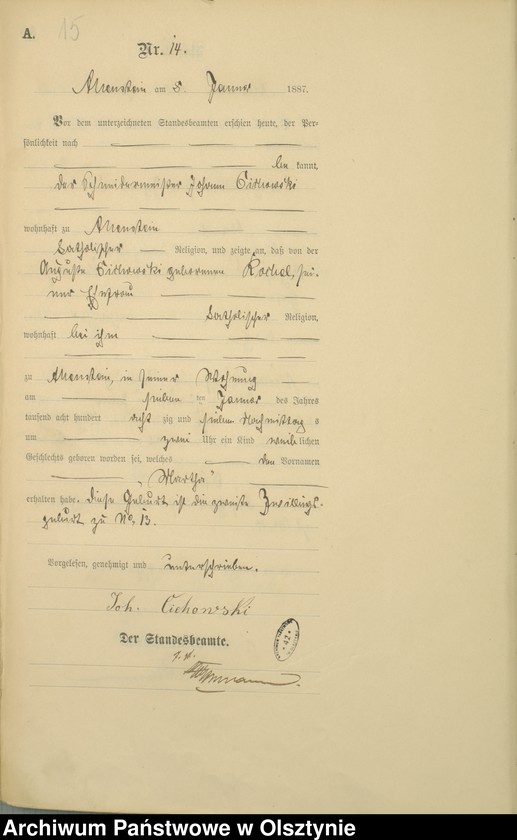 A. 15
Nr. 14.
Allenstein am 8. Januar 1887.
Vor dem unterzeichneten Standesbeamten erschien heute, der Per-
sönlichkeit nach
be kannt,
der Schneidermeister Johann Cichowski
wohnhaft zu Allenstein
katholischer Religion, und zeigte an, daß von der
Auguste Cichowski geborenen Kockel, sei-
ner Ehefrau
katholischer Religion,
wohnhaft bei ihm
zu Allenstein, in seiner Wohnung
am sieben ten Januar des Jahres
tausend acht hundert acht zig und sieben Nachmittag s
um zwei Uhr ein Kind weib lichen
Geschlechts geboren worden sei, welches den Vornamen
„Martha"
erhalten habe. Diese Geburt ist die zweite Zwillings-
geburt zu No. 13.
Vorgelesen, genehmigt und unterschrieben.
Joh. Cichowski
Der Standesbeamte.
42
Archiwum Państwowe w Olsztynie